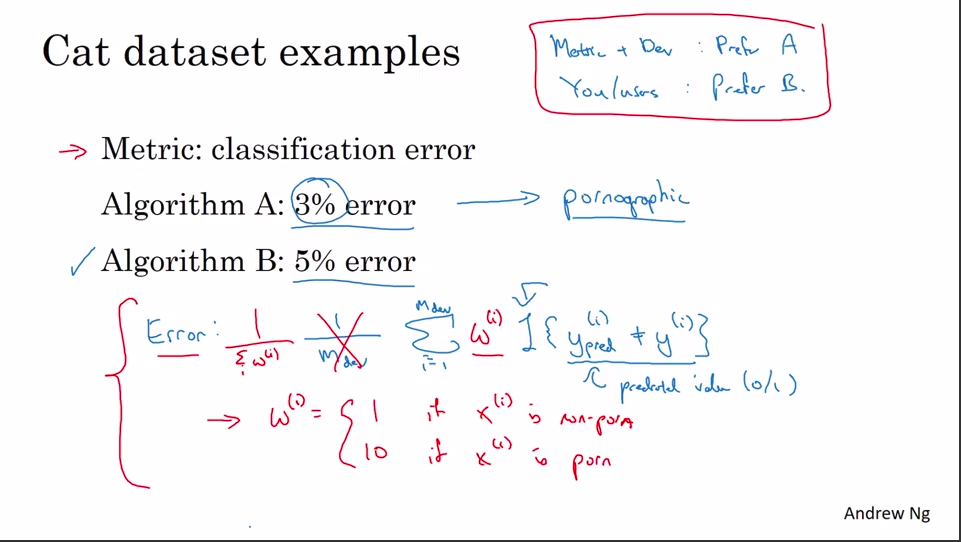 Cat dataset examples
Metric + Dev : Prefer A
You/users : Prefer B.
→ Metric: classification error
Algorithm A: 3% error → pornographic
✓ Algorithm B: 5% error
Error: 1/Σᵢ w⁽ⁱ⁾ 1/m_dev Σᵢ₌₁^(m_dev) w⁽ⁱ⁾ I{y_pred⁽ⁱ⁾ ≠ y⁽ⁱ⁾}
predicted value (0/1)
→ w⁽ⁱ⁾ = { 1 if x⁽ⁱ⁾ is non-porn
10 if x⁽ⁱ⁾ is porn
Andrew Ng